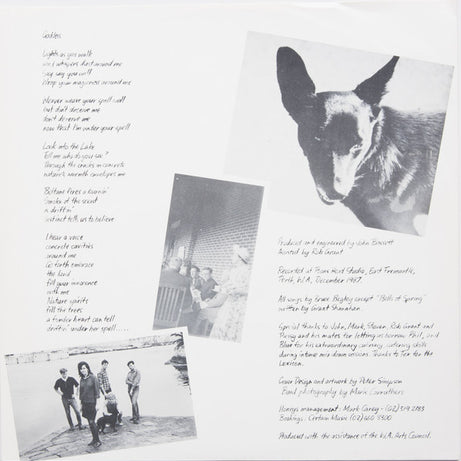 Goddess
Lights as you walk
wind whispers dust around me
say say you will
Weep your magicness around me
Never weave your spell well
but don't deserve me
don't deserve me
now that I'm under your spell
Look into the Lake
Tell me who do you see?
Through the cracks in concrete
nature's warmth envelopes me
Bottome fires a burnin'
Smoke of the scent
a driftin'
instinct tells us to believe
I hear a voice
concrete cavities
around me
Go forth embrace
the land
fill your innocence
with me
Nature spirits
fill the trees
a timber heart can tell
driftin' under her spell.....
Produced and engineered by John Bassett
Assisted by Rob Grant
Recorded at Planet Studio, East Fremantle,
Perth, W.A., December 1987.
All songs by Bruce Begley except "Bells of Spring"
written by Grant Shanahan
Special thanks to John, Mark, Steven, Rob Grant and
and his mates for letting us borrow Phil, and
Blue for his extraordinary catering skills
during intense mix down sessions. Thanks to Fer for the
Cover Design and artwork by Peter Simpson
Band photography by Mark Carruthers
management: Mark Carey - (02) 319 2783
Bookings: Certain Music (02) 660 3800
Produced with the assistance of the W.A. Arts Council.